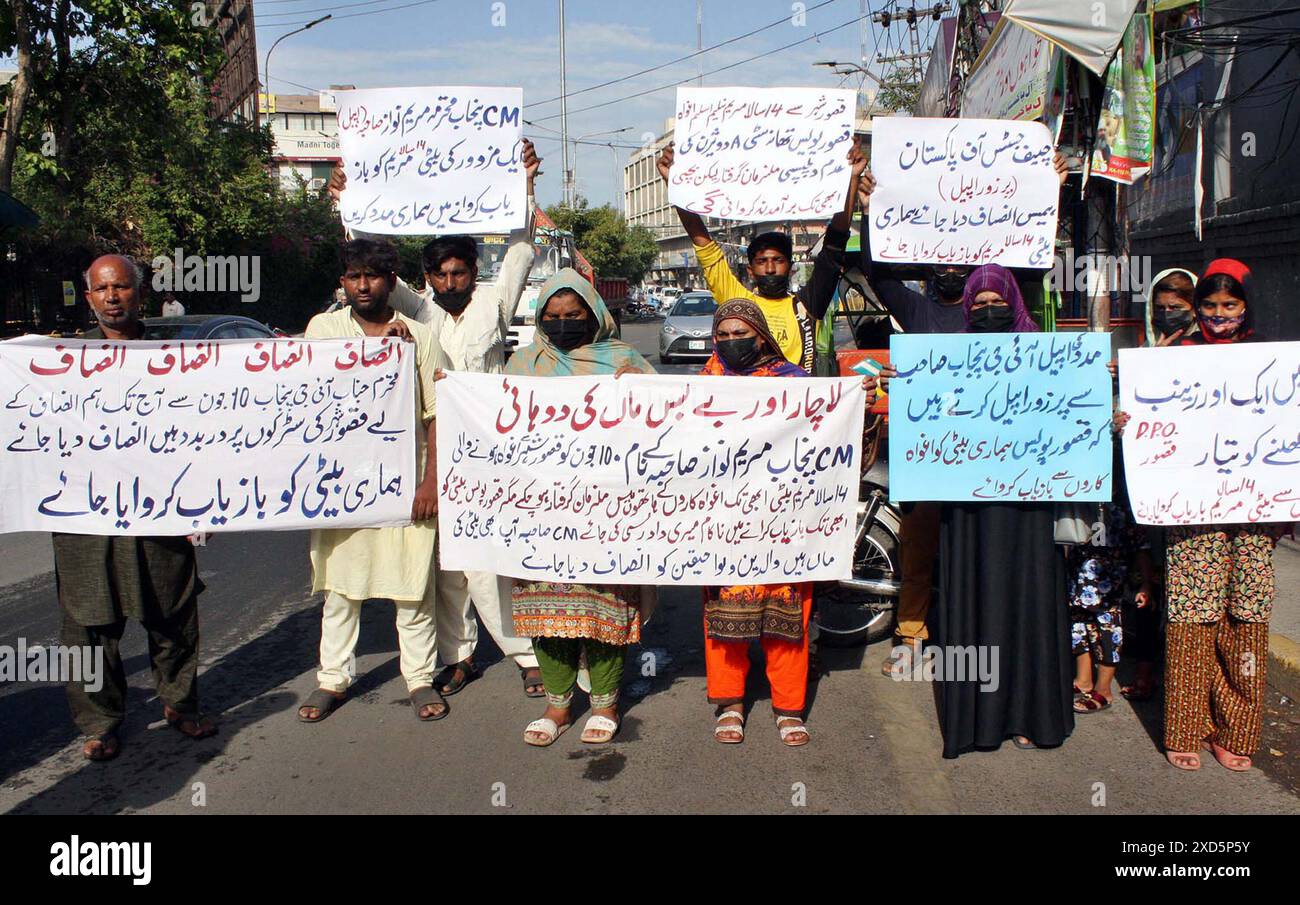 CM پنجاب محترمہ مریم نواز صاحبہ (اپیل)
ایک مزدور کی بیٹی 14 سالا مریم کو باز
یاب کروانے میں ہماری مدد کریں
قصور شہر سے 14 سالا مریم
قصور پولیس تھانہ سٹی A ڈویژن کی
عدم دلچسپی ملزمان گرفتار لیکن بچی
ابھی تک برآمد نہ کروائی گئی
چیف جسٹس آف پاکستان
(پر زور اپیل)
ہمیں انصاف دیا جائے ہماری
بیٹی 14 سالا مریم کو بازیاب کروایا جائے
انصاف انصاف انصاف انصاف
محترم جناب آئی جی پنجاب 10 جون سے آج تک ہم انصاف کے
لیے قصور کی سڑکوں پر دربدر ہیں انصاف دیا جائے
ہماری بیٹی کو باز یاب کروایا جائے
لاچار اور بے بس ماں کی دوہائی
CM پنجاب مریم نواز صاحبہ کے نام 10 جون کو قصور شہر سے اغواہ ہونے والی
14 سالا مریم بیٹی ابھی تک اغواہ کاروں کے ہاتھ میں ملزمان گرفتار ہو چکے مگر قصور پولیس بیٹی کو
ابھی تک بازیاب کرانے میں ناکام میری داد رسی کی جائے CM صاحبہ آپ بھی بیٹی کی
ماں ہیں والدین و لواحقین کو انصاف دیا جائے
مدد اپیل آئی جی پنجاب صاحب
سے پر زور اپیل کرتے ہیں
کہ قصور پولیس ہماری بیٹی کو اغواہ
کاروں سے بازیاب کروائے
ایک اور زینب
کو تیار D.P.O.
قصور
سے بیٹی 14 سالا مریم بازیاب کروایا
Madni Toge
alamy
Image ID: 2XD5P5Y
www.alamy.com